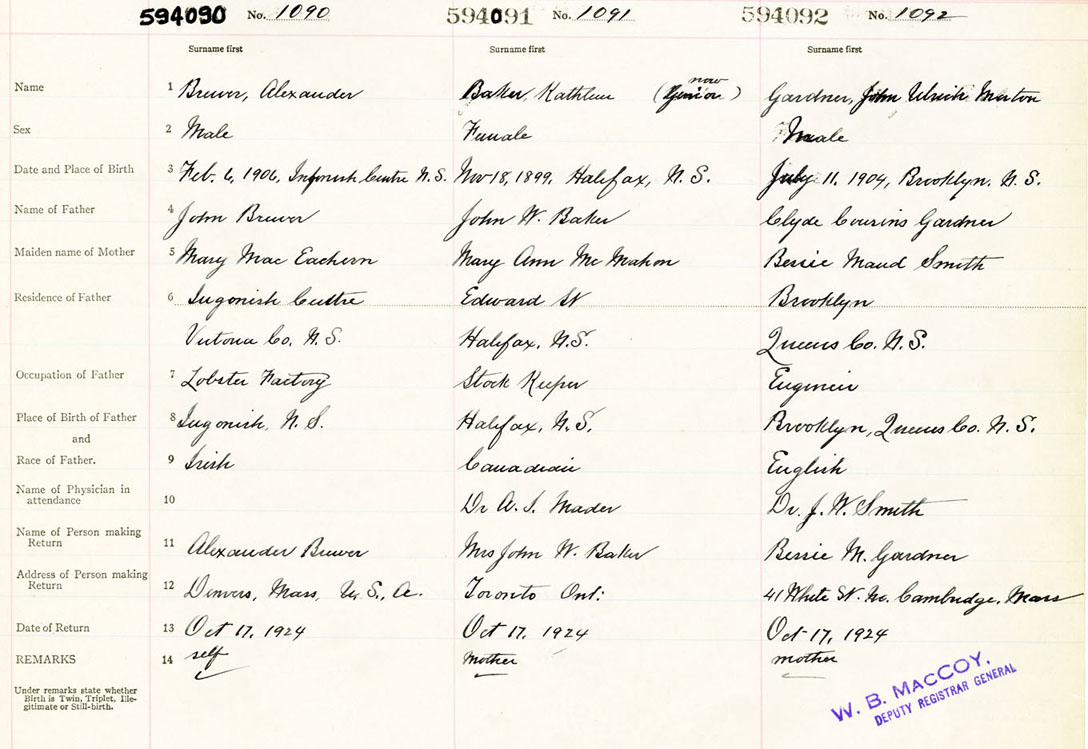 594090 No. 1090 594091 No. 1091 594092 No. 1092
Surname first Surname first Surname first
Name 1 Brewer, Alexander Baker, Kathleen (now Junior) Gardner, John Ulrich Merton
Sex 2 Male Female Male
Date and Place of Birth 3 Feb. 6, 1906, Ingonish Centre N.S. Nov 18, 1899, Halifax, N.S. July 11, 1904, Brooklyn, N.S.
Name of Father 4 John Brewer John W. Baker Clyde Cousins Gardner
Maiden name of Mother 5 Mary Mac Eachern Mary Ann Mc Mahon Bessie Maud Smith
Residence of Father 6 Ingonish Centre Edward St Brooklyn
Victoria Co. N.S. Halifax, N.S. Queens Co. N.S.
Occupation of Father 7 Lobster Factory Stock Keeper Engineer
Place of Birth of Father 8 Ingonish, N.S. Halifax, N.S. Brooklyn, Queens Co. N.S.
and
Race of Father. 9 Irish Canadian English
Name of Physician in
attendance 10 Dr A. I. Mader Dr. J. W. Smith
Name of Person making
Return 11 Alexander Brewer Mrs John W. Baker Bessie M. Gardner
Address of Person making
Return 12 Denvers, Mass, U.S.A. Toronto Ont: 41 White St. No. Cambridge, Mass
Date of Return 13 Oct 17, 1924 Oct 17, 1924 Oct 17, 1924
REMARKS 14 self mother mother
Under remarks state whether
Birth is Twin, Triplet, Ille-
gitimate or Still-birth.
W. B. MacCOY,
DEPUTY REGISTRAR GENERAL